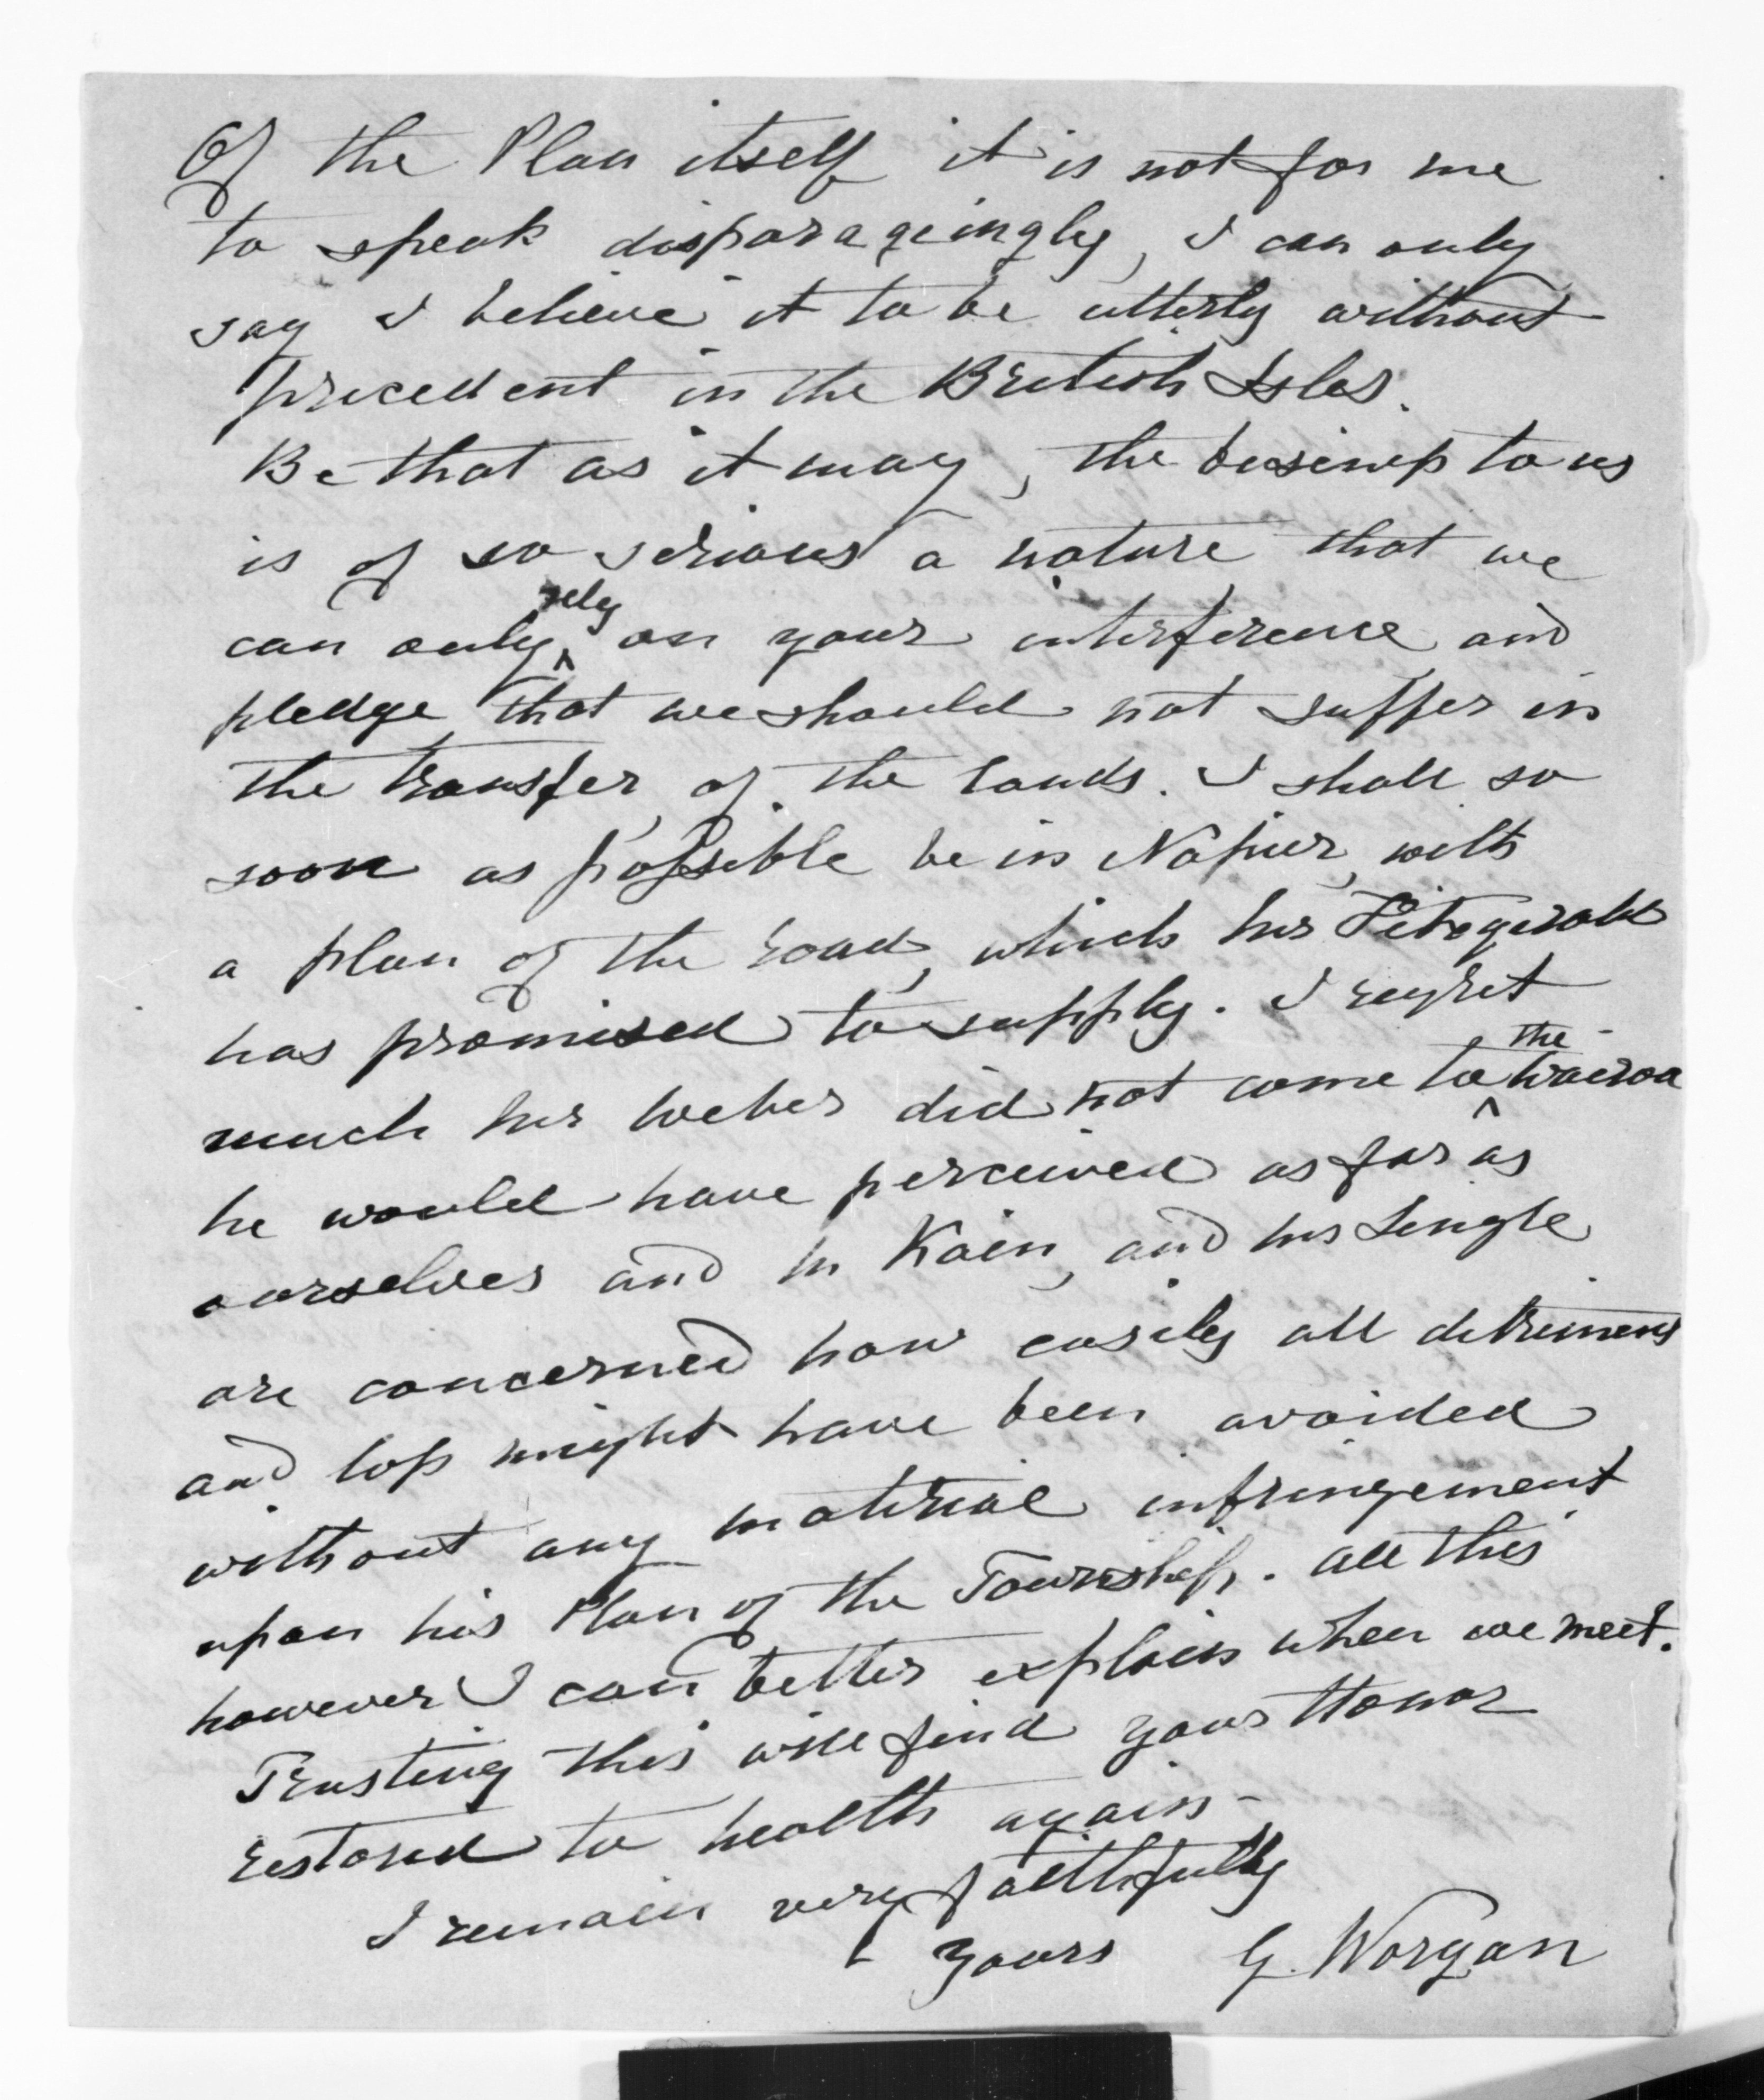 Of the Plan itself it is not for me
to speak disparageingly, I can only
say I believe it to be utterly without
precedent in the British Isles.
Be that as it may, the business to us
is of so serious a nature that we
can only ^rely on your interference and
pledge that we should not suffer in
the transfer of the lands. I shall so
soon as possible be in Napier, with
a plan of the road, which Mr Fitzgerald
has promised to supply. I regret
much Mr Weber did not come to ^the Wairoa
he would have perceived as far as
ourselves and Mr Kain, and Mr Lingle
are concerned how easily all detriment
and loss might have been avoided
without any material infringement
upon his Plan of the Township. All this
however I can better explain when we meet.
Trusting this will find your Honor
restored to health again -
I remain very faithfully
Yours G. Worgan